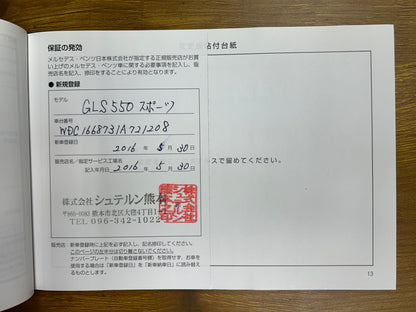 保証の発効
メルセデス・ベンツ日本株式会社が指定する正規販売店がお買
い上げのメルセデス・ベンツ車に関する必要事項を記入し、販
売店名を記入、捺印をすることにより有効となります。
● 新規登録
モデル
GLS550 スポーツ
車台番号
WDC1668731A721208
新車登録日
2016 年 5 月 30 日
販売店名／指定サービス工場名
記入年月日 2016 年 5 月 30 日
株式会社 シュテルン熊本
熊本市北区大窪4丁目1
TEL 096-342-1022
販売店：新車登録時に上記を必ず記入し、記名捺印してください。
このページの左半分は切り離さないでください。
ナンバープレート（自動車登録番号標）を取得せず、お車を
使用する場合は「新車登録日」を「新車納車日」に読み替え
るものとします。
貼付台紙
スで留めてください。
13